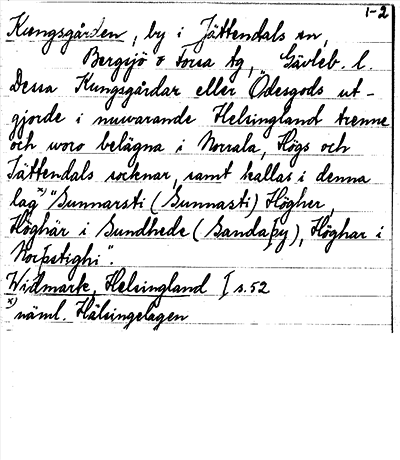 1-2
Kungsgården, by i Jättendals sn,
Bergsjö o Forsa tg, Gävleb. l.
Dessa Kungsgårdar eller Ödesgods ut-
gjorde i nuwarande Helsingland trenne
och woro belägna i Norrala, Högs och
Jättendals socknar, samt kallas i denna
lag x) "Gunnarsti (Gunnasti) Högher,
Höghär i Sundhede (Sanda þy), Höghar i
Norþstighi".
Widmark, Helsingland I s. 52
x) näml. Hälsingelagen